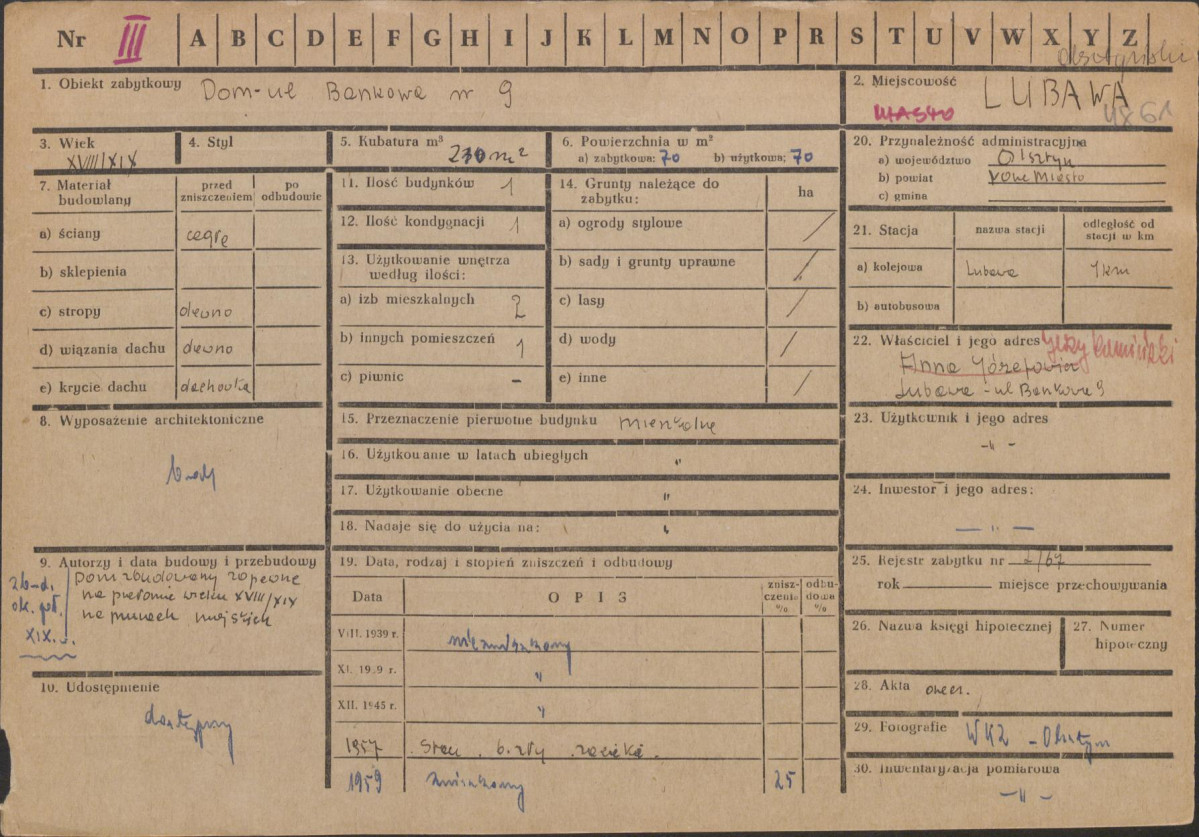 Nr III A B C D E F G H I J K L M N O P R S T U V W X Y Z
1. Obiekt zabytkowy Dom-ul Bankowa nr 9
2. Miejscowość LUBAWA
MIASTO
3. Wiek
XVIII/XIX
4. Styl
5. Kubatura m³
210 m²
6. Powierzchnia w m²
a) zabytkowa: 70 b) użytkowa: 70
7. Materiał budowlany
przed zniszczeniem
po odbudowie
a) ściany cegłę
b) sklepienia
c) stropy drewno
d) wiązania dachu drewno
e) krycie dachu dachówka
8. Wyposażenie architektoniczne
brak
9. Autorzy i data budowy i przebudowy
zb-d. ok. poł. XIX w.
Dom zbudowany zapewne
na przełomie wieku XVIII/XIX
na murach miejskich
10. Udostępnienie
dostępny
11. Ilość budynków 1
12. Ilość kondygnacji 1
13. Użytkowanie wnętrza
według ilości:
a) izb mieszkalnych 2
b) innych pomieszczeń 1
c) piwnic -
14. Grunty należące do
zabytku:
ha
a) ogrody stylowe /
b) sady i grunty uprawne /
c) lasy /
d) wody /
e) inne /
15. Przeznaczenie pierwotne budynku mieszkalne
16. Użytkowanie w latach ubiegłych "
17. Użytkowanie obecne "
18. Nadaje się do użycia na: "
19. Data, rodzaj i stopień zniszczeń i odbudowy
Data
OPIS
zniszczenia %
odbudowa %
VIII. 1939 r. niezniszczony
XI. 1939 r. "
XII. 1945 r. "
1957 Stan b. zły zacieka.
1959 zniszczony 25
20. Przynależność administracyjna
a) województwo Olsztyn
b) powiat Nowe Miasto
c) gmina
21. Stacja
nazwa stacji
odległość od
stacji w km
a) kolejowa Lubawa 1 km
b) autobusowa
22. Właściciel i jego adres Jerzy Kamiński
Anna Józefowicz
Lubawa - ul Bankowa 9
23. Użytkownik i jego adres
-"-
24. Inwestor i jego adres:
-"-
25. Rejestr zabytku nr 2/67
rok miejsce przechowywania
26. Nazwa księgi hipotecznej
27. Numer
hipoteczny
28. Akta
29. Fotografie WKZ - Olsztyn
30. Inwentaryzacja pomiarowa
-"-